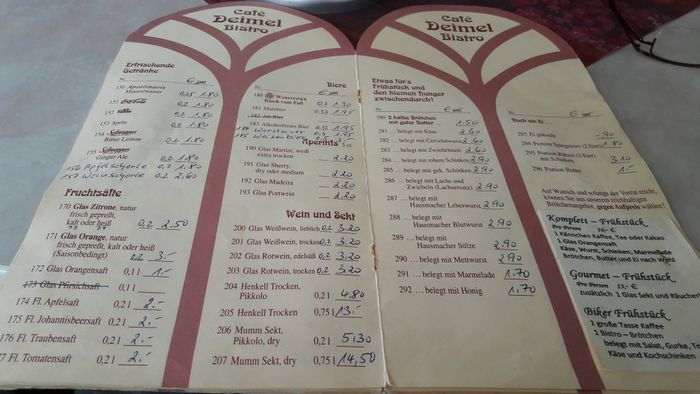 Café
Deimel
Bistro
Erfrischende
Getränke
€
150 Apollinaris
Mineralwasser 0,25 1.80
151 Coca-Cola 0,2 1.80
152 0,2 1.80
153 Sprite 0,2 1.80
154 Schweppes
Bitter Lemon 0,2 1.80
155 Schweppes
Ginger Ale 0,2 1.80
156 Apfelschorle 0,2 1.80
157 Weinschorle 0,2 2.60
Fruchtsäfte
170 Glas Zitrone, natur
frisch gepreßt,
kalt oder heiß 0,2 2.50
171 Glas Orange, natur
frisch gepreßt, kalt oder heiß
(Saisonbedingt) 0,2 3.-
172 Glas Orangensaft 0,1 l 1.-
173 Glas Pfirsichsaft 0,1 l
174 Fl. Apfelsaft 0,2 l 2.-
175 Fl. Johannisbeersaft 0,2 l 2.-
176 Fl. Traubensaft 0,2 l 2.-
77 Fl. Tomatensaft 0,2 l 2.-
Biere
€
180 WARSTEINER
frisch vom Faß 0,2 1.30
181 Malzbier 0,33 1.95
182 Alt-Bier
183 Alkoholfreies Bier 0,33 1.95
Aperitifs
190 Glas Martini, weiß
extra trocken 2.20
191 Glas Sherry,
dry oder medium 2.20
192 Glas Madeira 2.20
193 Glas Portwein 2.20
Wein und Sekt
200 Glas Weißwein, lieblich 0,2 3.20
201 Glas Weißwein, trocken 0,2 3.20
202 Glas Rotwein, edelsüß 0,2 3.20
203 Glas Rotwein, trocken 0,2 3.20
204 Henkell Trocken,
Pikkolo 0,2 l 4.80
205 Henkell Trocken 0,75 l 13.-
206 Mumm Sekt,
Pikkolo, dry 0,2 l 5.30
207 Mumm Sekt, dry 0,75 l 14,50
Café
Deimel
Bistro
Etwas für's
Frühstück und
den kleinen Hunger
zwischendurch!
€
280 2 halbe Brötchen
mit guter Butter 1.50
281 ... belegt mit Käse 2.60
282 ... belegt mit Cervelatwurst 2.60
283 ... belegt mit Zwiebelmett 2.60
284 ... belegt mit rohem Schinken 2.90
285 ... belegt mit gek. Schinken 2.90
286 ... belegt mit Lachs und
Zwiebeln (Lachsersatz) 2.90
287 ... belegt mit
Hausmacher Leberwurst 2.90
288 ... belegt mit
Hausmacher Blutwurst 2.90
289 ... belegt mit
Hausmacher Sülze 2.90
290 ... belegt mit Mettwurst 2.90
291 ... belegt mit Marmelade 1.70
292 ... belegt mit Honig 1.70
Noch ein Ei ...
€
293 Ei gekocht -.90
294 Portion Spiegeleier (2 Eier) 1.80
295 Portion Rührei (3 Eier)
mit Schinken 3.10
296 Portion Butter 1.-
Auf Wunsch und solange der Vorrat reicht,
können Sie aus unserem reichhaltigen
Brötchenangebot, gegen Aufpreis wählen!
Komplett – Frühstück
Pro Person 10,- €
1 Kännchen Kaffee, Tee oder Kakao
1 Glas Orangensaft
Käse, Wurst, Schinken, Marmelade
Brötchen, Butter und Ei nach Wahl
Gourmet – Frühstück
Pro Person 13,- €
zusätzlich 1 Glas Sekt und Räucherl
Biker Frühstück
1 große Tasse Kaffee
1 Bistro – Brötchen
belegt mit Salat, Gurke, To
Käse und Kochschinken